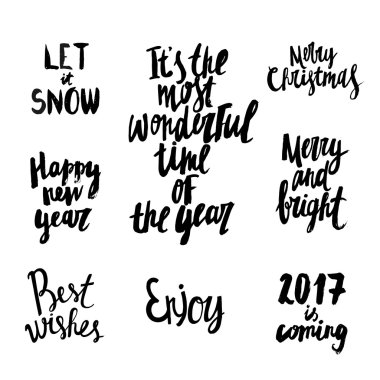 LET
it
SNOW
It's the
most
wonderful
time
of
the year
Merry
Christmas
Happy
new
year
Merry
and
bright
Best
wishes
Enjoy
2017
is
coming